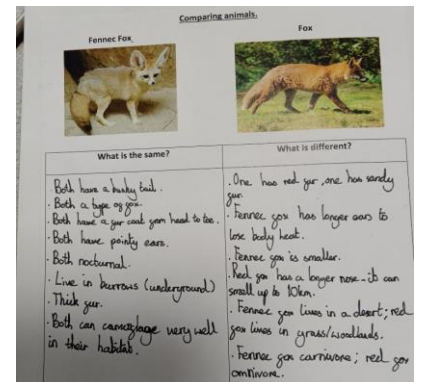 Comparing animals.
Fennec Fox.
Fox
What is the same?
· Both have a bushy tail.
· Both a type of fox.
· Both have a fur coat from head to toe.
· Both have pointy ears.
· Both nocturnal.
· Live in burrows (underground)
· Thick fur.
· Both can camouflage very well
in their habitat.
What is different?
· One has red fur, one has sandy
fur.
· Fennec fox has longer ears to
lose body heat.
· Fennec fox is smaller.
· Red fox has a longer nose - it can
smell up to 10km.
· Fennec fox lives in a desert; red
fox lives in grass/woodlands.
· Fennec fox carnivore; red fox
omnivore.